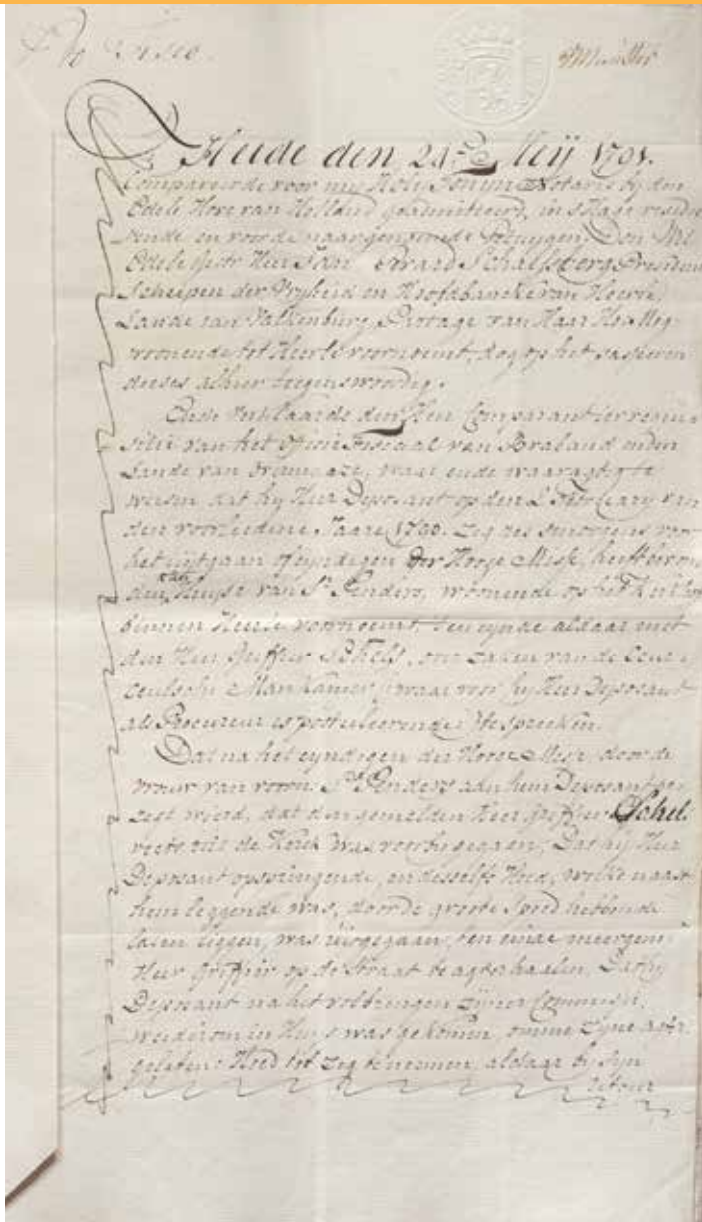 Pro Fisco.
Heede den 21.e Meij 1791.
Compareerde voor my Notaris by den
Edele Hove van Holland geadmitteert, in s'Hage reside
rende en voor de naargenoemde getuygen, Den Wel
Edele Gestr. Heer Jan Schepen President
Schepen der Vryheid en Hoofdbancke van Heerle,
Lande van Valkenburg, Partage van Haar Ho: Mog:
woonende tot Heerle voornoemt, dog op het passeeren
deeses alhier teegenswoordig.
Ende verklaarde den Heer Comparant ter requi
sitie van het Officie Fiscaal van Braband en den
Lande van Overmaaze, waar ende waaragtig te
weesen dat hy Heer Deposant op den 2. February van
den voorleedene Jaare 1790. zig des smorgens voor
het uijtgaan ofte eyndigen der Hooge Misse, heeft
den Huyse van Sr. Penders, woonende op het Kerkhof
binnen Heerle voornoemt, ten eynde aldaar met
den Heer Griffier Schels, over zaken van de
Ceulsche Mankamer, (waar voor hy Heer Deposant
als Procureur is postuleerende) te spreeken.
Dat na het eyndigen der Hooge Misse, door de
vrouw van voorn. Sr. Penders aan hem Deposant ge
zegt wierd, dat den gemelden Heer Griffier Schel
reets uit de Kerk was voorby gegaan, Dat hy Heer
Deposant opspringende, en desselfs Hoed, welke naast
hem leggende was, door de groote spoed hebbende
laten leggen, was uitgegaan, ten einde meergem:
Heer Griffier op de Straat te agterhaalen, Dat hy
Deposant na het volbrengen zyner Commissie,
wederom in Huys was gekomen, omme zyne agter
gelatene Hoed tot zig te neemen, aldaar by syn
retour